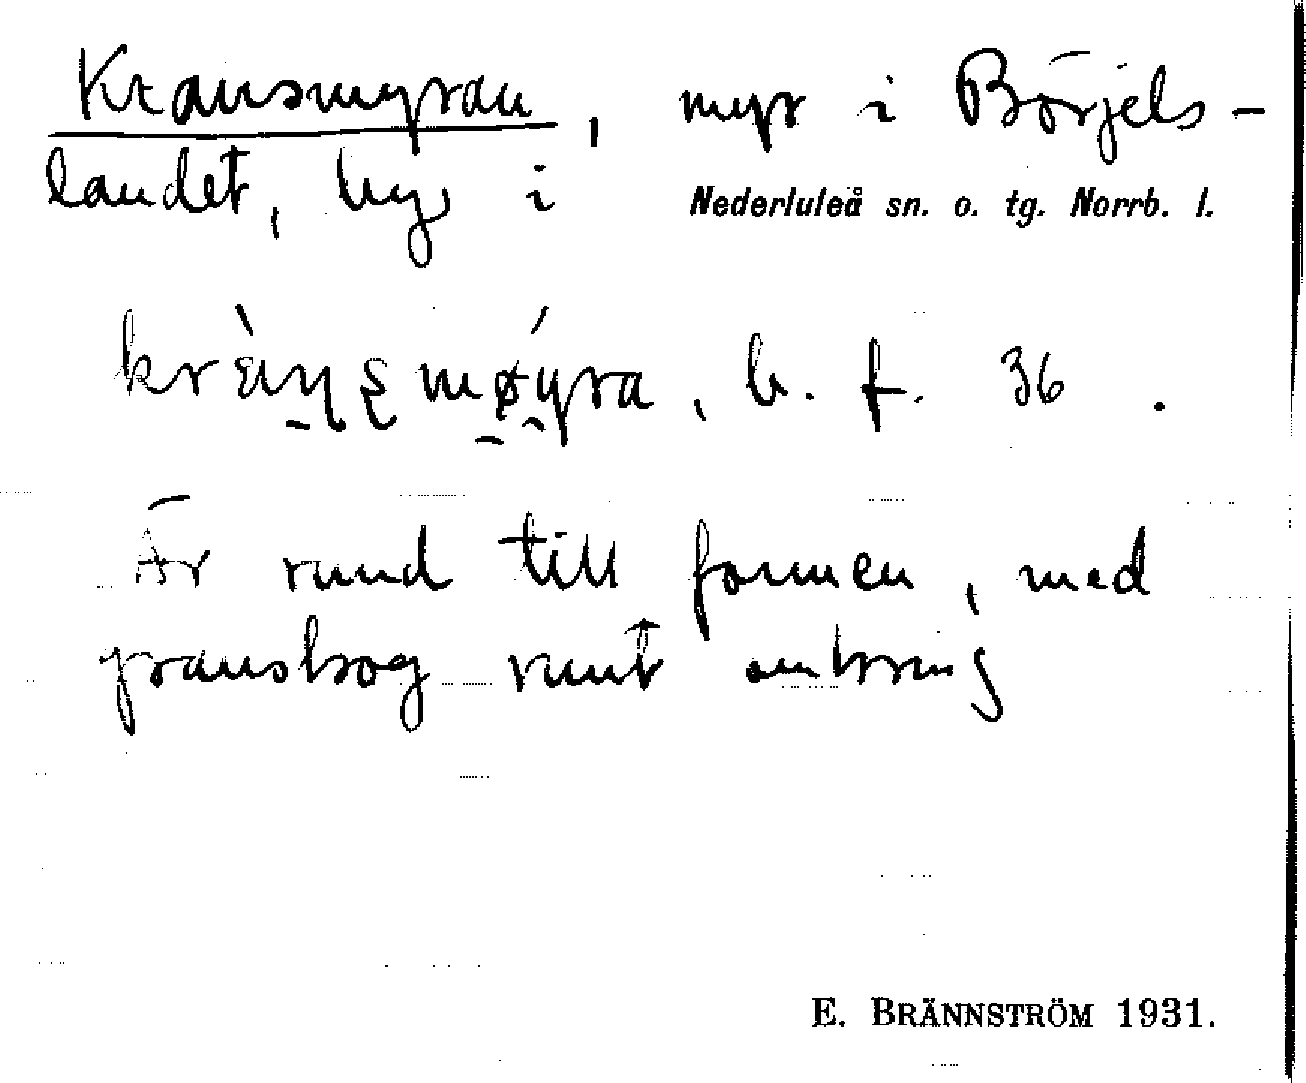 Kransmyran, myr i Börjels-
landet, by i Nederluleå sn. o. tg. Norrb. l.
b. f. 36.
Är rund till formen, med
granskog runt omkring
E. BRÄNNSTRÖM 1931.